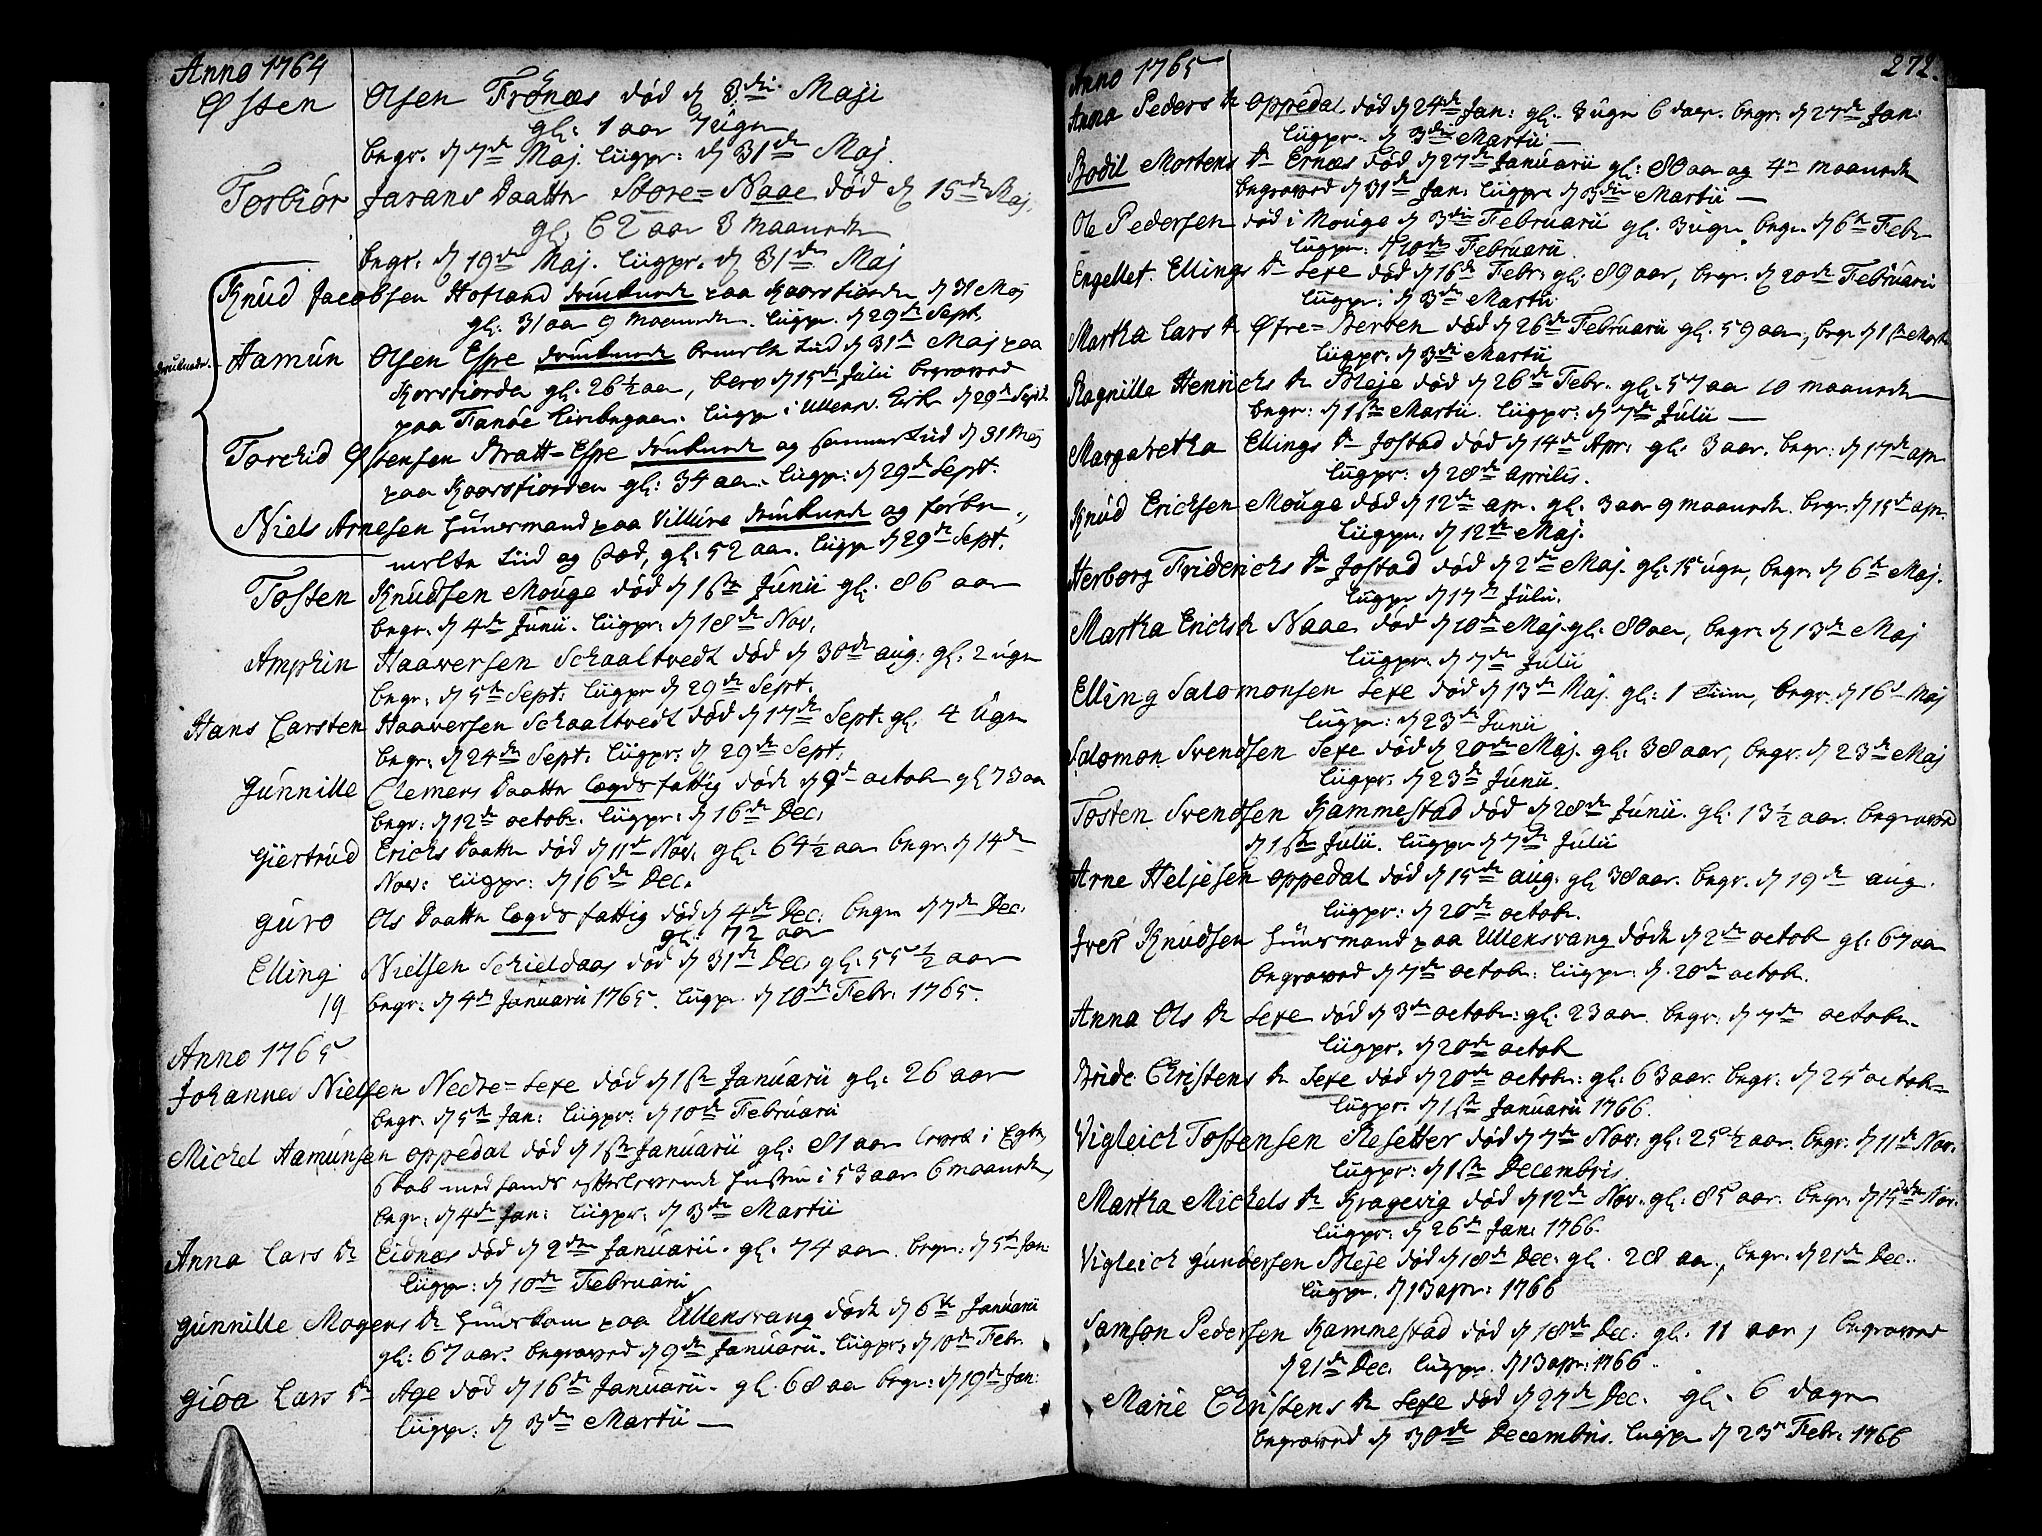 Anno 1764
Østen Olsen Frönæs död d 3die Maji
gl: 1 aar 7 ugr
begr. d 7de Maj. liigpr: d 31de Maj.
Torbiör Jarans Daatter Store=Naae död d 15de Maj.
gl. 62 aar 3 maaneder
begr. d 19de Maj. liigpr. d 31de Maj
Knud Jacobsen Hofland druknede paa Kaarsfiorden d 31 Maj
gl: 31 aar 9 maaneder. liigpr. d 29de Sept.
druknede. Aamun Olsen Espe druknede d 31te Maj paa
Korsfiorden gl: 26 1/2 aar, d 15de Julii begraved
paa Fanöe liigpr i Ullensv. Kirke d 29de Sept.
Torchild Østensen Bratt=Espe druknede og d 31 Maj
paa Kaarsfiorden gl: 34 aar. liigpr: d 29de Sept.
Niels Arnesen Huusmand paa Villure druknede og
sted, gl: 52 aar. liigpr d 29de Sept.
Tosten Knudsen Mouge död d 1ste Junii gl: 86 aar
begr. d 4de Junii. liigpr: d 18de Nov.
Amphin Haaversen Schaaltvedt död d 30de aug: gl: 2 ugr
begr: d 5te Sept: liigpr d 29de Sept.
Hans Carsten Haaversen Schaaltvedt död d 17de Sept. gl: 4 ugr
begr: d 24de Sept: liigpr: d 29de Sept.
Gunnille Clemens Daatter lægds fattig döde d 9de octobr gl 73 aar
begr: d 12te octobr. liigpr: d 16de Dec.
Giertrud Erichs Daatter död d 11te Nov. gl: 64 1/2 aar begr: d 14de
Nov: liigpr: d 16de Dec.
Guro Ols Daatter lægds fattig död d 4de Dec: begr d 7de Dec.
gl: 72 aar
Elling Nielsen Schieldaas död d 31te Dec. gl: 55 1/2 aar
19 begr: d 4de Januarii 1765. liigpr. d 10de Febr: 1765.
Anno 1765
Johannes Nielsen Nedre=Sexe död d 1ste Januarii gl: 26 aar
begr. d 5te Jan: liigpr. d 10de Februarii
Michel Aamunsen oppedal död d 1ste Januarii gl: 81 aar levet i Egte
skab med hands efterlevende Hustru i 53 aar 6 maaneder,
begr: d 4de Jan: liigpr: d 3de Martii
Anna Lars Dr Eidnæs död d 2den Januarii. gl: 74 aar. begr: d 5te Jan:
liigpr: d 10de Februarii
Gunnille Mogens Dr Huuskone paa Ullensvang döde d 6te Januarii
gl: 67 aar. begraved d 9de Januarii. liigpr: d 10de Febr.
Gioa Lars Dr Age död d 16de Januarii. gl. 68 aar begr: d 19de Jan:
liigpr: d 3de Martii
Anno 1765 272.
Anna Peders Dr oppedal död d 24de Jan: gl: 3 ugr 6 dage. begr: d 27de Jan:
liigpr. d 3die Martii
Bodil Mortens Dr Ernæs död d 27de Januarii gl: 80 aar og 4 maaneder
begraved d 31te Jan: liigpr d 3die Martii
Ole Pedersen död i Mouge d 3die Februarii gl: 3 ugr. begr. d 6te Febr
liigpr: d 10de Februarii
Engellet Ellings Dr Sexe död d 16de Febr: gl: 89 aar, begr. d 20de Februarii
liigpr: d 3de Martii
Martha Lars Dr Øfre=Berven död d 26de Februarii gl: 59 aar, begr d 1ste Martii
liigpr: d 3die Martii
Ragnille Henrichs Dr Bleje död d 26de Febr. gl: 57 aar 10 maaneder
begr: d 1ste Martii. liigpr: d 7de Julii
Margaretha Ellings Dr Jostad död d 14de Apr: gl: 3 aar. begr: d 17de apr
liigpr: d 28de aprilis.
Knud Erichsen Mouge död d 12te apr. gl: 3 aar 9 maaneder. begr. d 15de apr.
liigpr. d 12te Maj.
Herborg Friderichs Dr Jostad död d 2den Maj. gl: 15 ugr, begr. d 6te Maj.
liigpr d 17de Julii.
Martha Erichs Dr Naae död d 10de Maj. gl: 80 aar, begr: d 13de Maj
liigpr. d 7de Julii
Elling Salomonsen Sexe död d 13de Maj. gl: 1 time, begr: d 16de Maj
liigpr: d 23de Junii
Salomon Svendsen Sexe död d 20de Maj. gl: 38 aar, begr: d 23de Maj
liigpr. d 23de Junii.
Tosten Svendsen Hammestad död d 28de Junii. gl. 13 1/2 aar. begraved
d 1ste Julii. liigpr d 7de Julii
Arne Heljesen oppedal död d 15de aug. gl 38 aar. begr. d 19de aug.
liigpr: d 20de octobr.
Iver Knudsen Huusmand paa Ullensvang döde d 2den octob gl: 67 aar
begraved d 7de octobr: liigpr: d 20de octob.
Anna Ols Dr Sexe död d 3de octobr: gl: 23 aar. begr: d 7de octobr.
liigpr. d 20de octob
Bride Christens Dr Sexe död d 20de octobr: gl: 63 aar. begr: d 24de octobr
liigpr. d 1ste Januarii 1766.
Vigleich Tostensen Resetter död d 7de Nov: gl: 25 1/2 aar. begr: d 11te Nov:
liigpr: d 1ste Decembris
Martha Michels Dr Kragevig död d 12te Nov. gl: 85 aar. begr: d 15de Nov:
liigpr: d 26de Jan: 1766.
Vigleich Gundersen Bleje död d 18de Dec: gl. 28 aar, begr: d 21de Dec.
liigpr. d 13 apr: 1766
Samson Pedersen Hammestad död d 18de Dec: gl: 11 aar, begraved
d 21de Dec. liigpr. d 13 apr: 1766.
Marie Christens Dr Sexe död d 27de Dec. gl: 6 dage
begraved d 30de Decembris. liigpr d 23de Febr. 1766